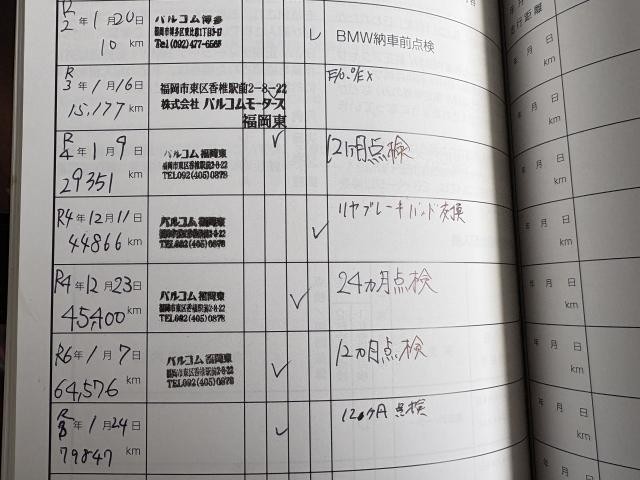 R2年1月20日
10 km
バルコム博多
福岡市博多区東比恵1丁目3-17
Tel (092)477-6565
BMW納車前点検
R3年1月16日
15,177 km
福岡市東区香椎駅前2-8-22
株式会社 バルコムモータース
福岡東
E/O. O/E X
R4年1月9日
29351 km
バルコム 福岡東
福岡市東区香椎駅前2-8-22
TEL092(405)0878
12ヵ月点検
R4年12月11日
44866 km
バルコム 福岡東
福岡市東区香椎駅前2-8-22
TEL092(405)0878
リヤブレーキパッド交換
R4年12月23日
45,400 km
バルコム 福岡東
福岡市東区香椎駅前2-8-22
TEL092(405)0878
24ヵ月点検
R6年1月7日
64,576 km
バルコム 福岡東
福岡市東区香椎駅前2-8-22
TEL092(405)0878
12ヵ月点検
年1月24日
79847 km
12ヶ月点検
走行距離
年 月 日
km
年 月 日
km
年 月 日
km
年 月 日
km
年 月 日
km
年 月 日
km
年 月 日
km
年 月 日